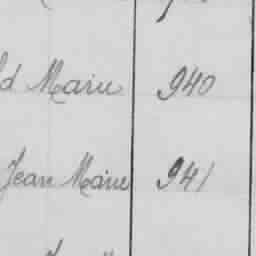 d Marie 940
Jean Marie 941